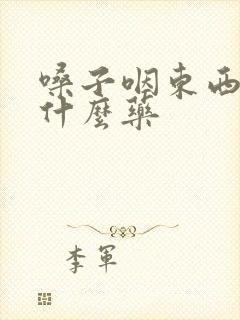 嗓子咽東西
什麼藥
李軍